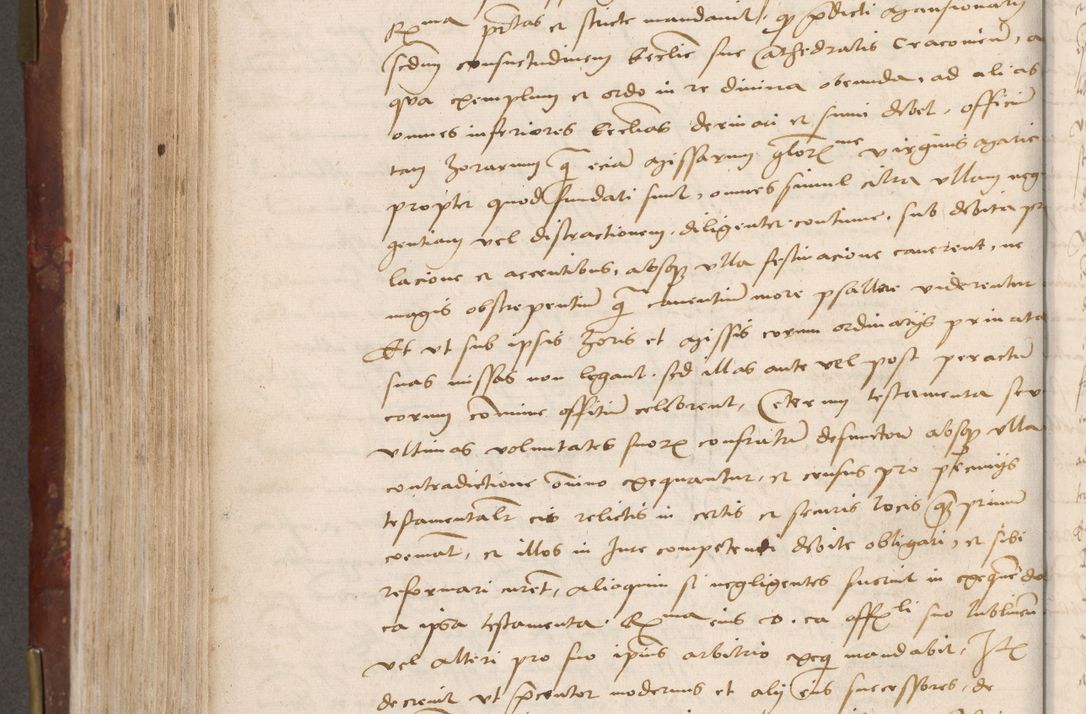 R^ma p̃ntas et stricte mandavit, q̃ p̃dicti mansionarij
scdm consuetudinem Ecclie sue Cathedralis Cracovien̄, a
qua exemplum et ordo in re divina obeunda, ad alias
omnes inferiores Ecclias derivari et sumi debet, officiū
tam Horarum q̃ eciā missarum glor^me virginis Marie
propter quod fundati sunt, omnes simul citra ullam neg
gentiam vel distractionem, diligenter continue, sub debita p
lacione et accentibus, absq₃ ulla festinacione canerent, ne
magis obstrepentiū q̃ canentiū more psallere viderentur
Et ut sub ipsis Horis et missis eorum ordinarijs privatas
suas missas non legant, sed illas ante vel post peractū
eorum comune offitiū celebrent, Ceterum testamenta seu
ultimas voluntates suorꝝ confratrū defunctorū absq₃ ulla
contradictione omino exequantur, et census pro pecunijs
testamentalr̄ eis relictis in certis et securis locis q̃ primū
coemāt, et illos in Jure competenti debite obligari, et sibi
reformari curēt, alioquin si negligentes fuerint in exequēdo
ea ipsa testamenta, R^ma eius D. ea off^li suo Lublinen̄
vel alteri pro suo ipius arbitrio exequi mandabit, Itē
decrevit ut p̃centor modernus et alij eius successores, de